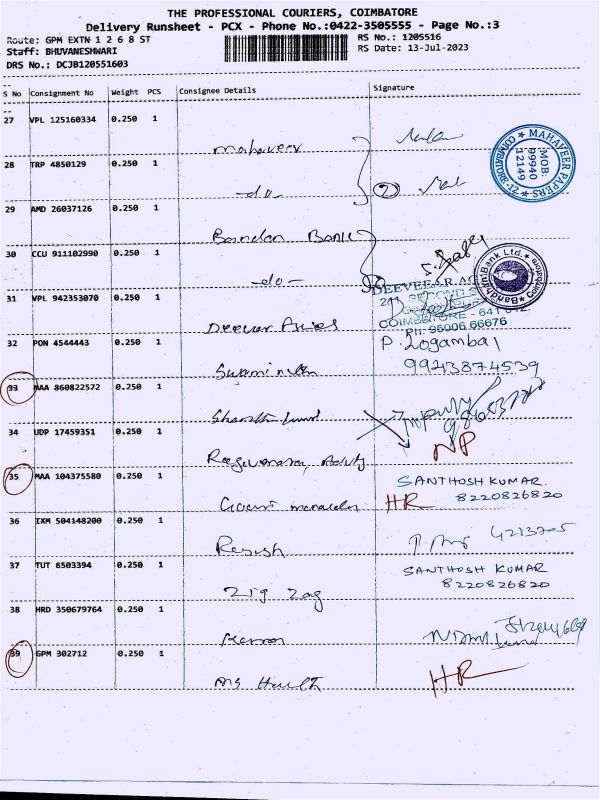 THE PROFESSIONAL COURIERS, COIMBATORE
Delivery Runsheet - PCX - Phone No.:0422-3505555 - Page No.:3
Route: GPM EXTN 1 2 6 8 ST
RS No.: 1205516
Staff: BHUVANESHWARI
RS Date: 13-Jul-2023
DRS No.: DCJB120551603
S No Consignment No Weight PCS Consignee Details Signature
27 VPL 125160334 0.250 1
mahaveer
MAHAVEER PAPERS
MOB:
99940
12149
COIMBATORE-12
28 TRP 4850129 0.250 1
-do-
2
29 AMD 26037126 0.250 1
Bandan Bank
30 CCU 911102990 0.250 1
-do-
Bandhan Bank Ltd.
Coimbatore
31 VPL 942353070 0.250 1
COIMBATORE - 641 012.
PH: 95006 66676
32 PON 4544443 0.250 1
P. Logambal
9943874539
33 MAA 860822572 0.250 1
34 UDP 17459351 0.250 1
NP
35 MAA 104375580 0.250 1
SANTHOSH KUMAR
HR 8220826820
36 IXM 504148200 0.250 1
Rejish
37 TUT 6503394 0.250 1
SANTHOSH KUMAR
8220826820
Zig Zag
38 HRD 350679764 0.250 1
39 GPM 302712 0.250 1
HR